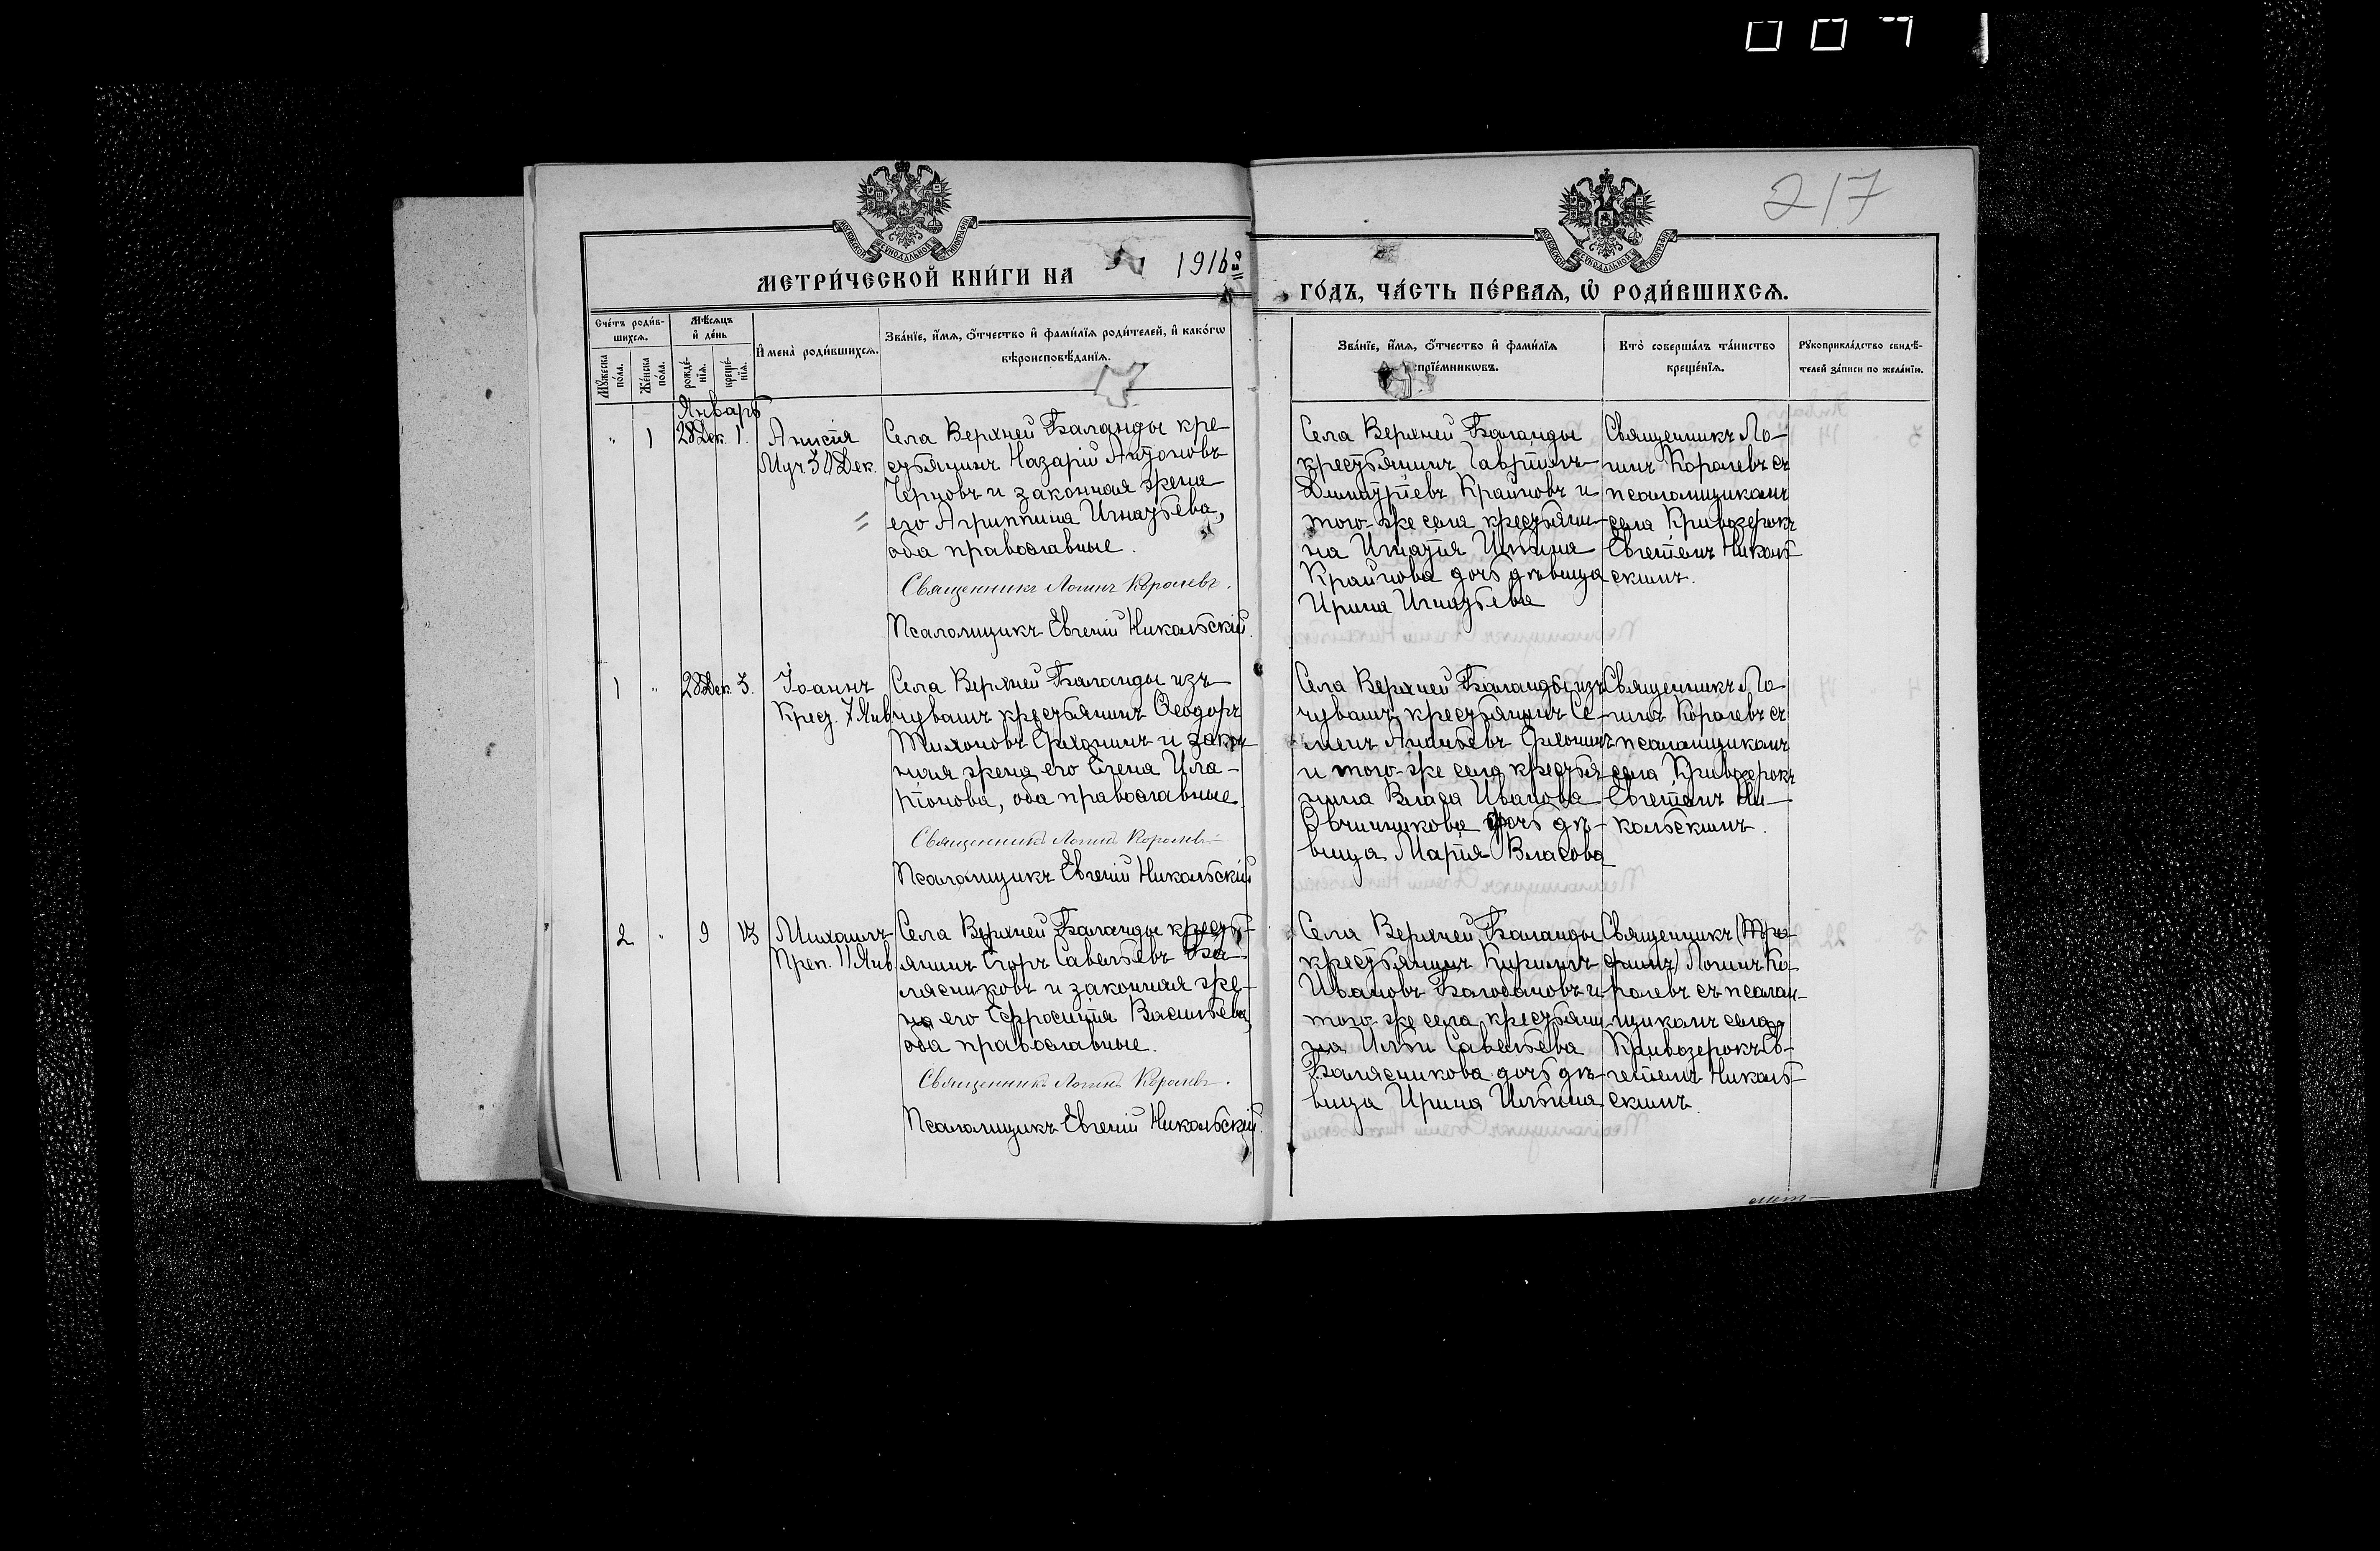 007
217
МЕТРИ́ЧЕСКОЙ КНИ́ГИ НА 1916й
ГО́ДЪ, ЧА́СТЬ ПЕ́РВАЯ, Ѽ РОДИ́ВШИХСЯ.
Сче́тъ роди́в-
шихся.
Мѣ́сяцъ
и҆ де́нь
Мꙋ́жеска по́ла.
Же́нска по́ла.
рожде́-нїя.
креще́-нїя.
И҆мена̀ роди́вшихся.
Зва́нїе, и҆́мя, ѻ҆́тчество и҆ фами́лїя роди́телей, и҆ како́гѡ
вѣроисповѣ́данїя.
Зва́нїе, и҆́мя, ѻ҆́тчество и҆ фами́лїя
спрїе́мникѡвъ.
Кто̀ соверша́лъ та́инство
креще́нїя.
Рꙋкоприкла́дство свидѣ́-
телей за́писи по жела́нїю.
Январь
" 1 28 Дек. 1.
Анисія
Муч. 30 Дек.
Села Верхней Баланды кре-
стьянинъ Назарій Антоновъ
Черновъ и законная жена
его Агриппина Игнатьева,
оба православные.
Священникъ Логинъ Королевъ.
Псаломщикъ Евгеній Никольскій.
Села Верхней Баланды
крестьянинъ Гавріилъ
Димитріевъ Крайновъ и
того-же села крестьяни-
на Игнатія Ильина
Крайнова дочь дѣвица
Ирина Игнатьева
Священникъ Ло-
гинъ Королевъ съ
псаломщикомъ
села Кривозерокъ
Евгеніемъ Николь-
скимъ.
1 " 28 Дек. 3.
Іоаннъ
Крест. 7 Янв.
Села Верхней Баланды изъ
чувашъ крестьянинъ Ѳеодоръ
Тихоновъ Филонинъ и закон-
ная жена его Елена Ила-
ріонова, оба православные
Священникъ Логинъ Королевъ
Псаломщикъ Евгеній Никольскій
Села Верхней Баланды изъ
чувашъ крестьянинъ Се-
менъ Ананьевъ Филонинъ
и того-же села крестья-
нина Власа Иванова
Овчинникова дочь дѣ-
вица Марія Власова
Священникъ Ло-
гинъ Королевъ съ
псаломщикомъ
села Кривозерокъ
Евгеніемъ Ни-
кольскимъ.
2 " 9 13
Михаилъ
Преп. 11 Янв.
Села Верхней Баланды кресть-
янинъ Егоръ Савельевъ Ба-
лясниковъ и законная же-
на его Евфросинія Васильева,
оба православные.
Священникъ Логинъ Королевъ.
Псаломщикъ Евгеній Никольскій.
Села Верхней Баланды
крестьянинъ Кириллъ
Ивановъ и
того-же села крестьяни-
на Ильи Савельева
Балясникова дочь дѣ-
вица Ирина Ильина
Священникъ
Логинъ Ко-
ролевъ съ псалом-
щикомъ села
Кривозерокъ Ев-
геніемъ Николь-
скимъ.